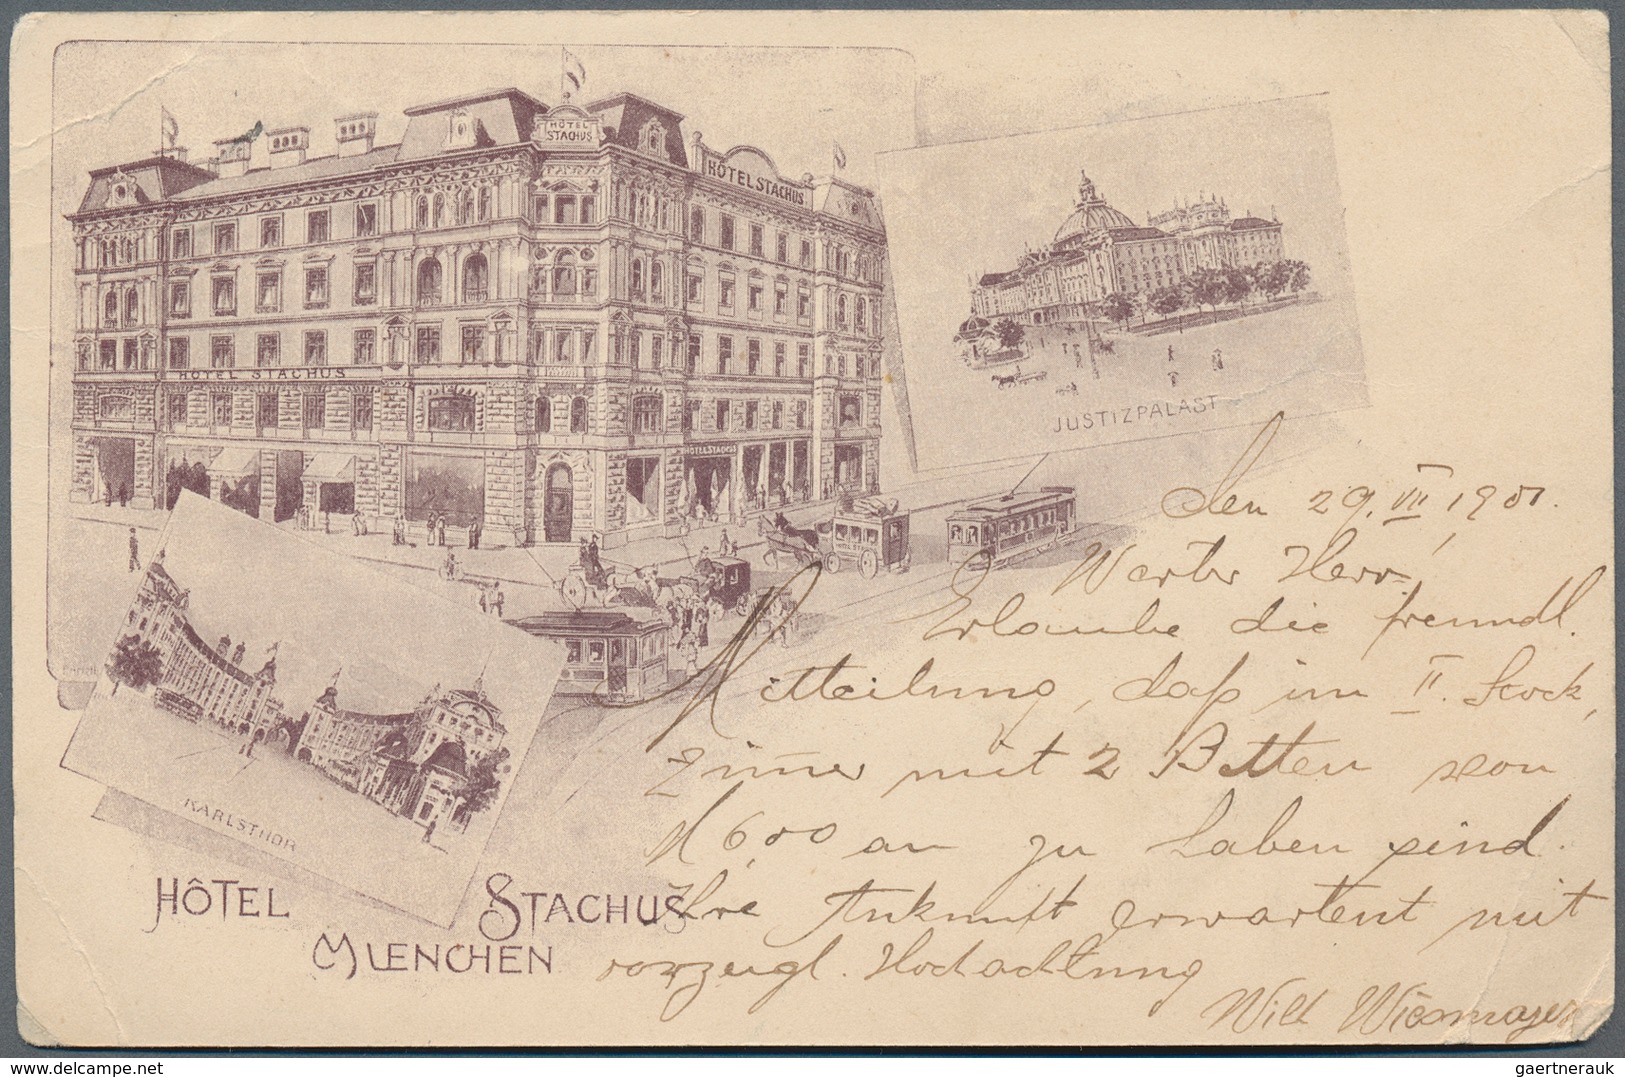 HÔTEL
STACHUS
HÔTEL STACHUS
HOTEL STACHUS
HOTEL STACHUS
JUSTIZPALAST
KARLSTHOR
HÔTEL STACHUS
MUENCHEN
Den 29. VII 1901.
Werter Herr!
Erlaube die freundl.
Mitteilung, daß im II. Stock,
Zim̅er mit 2 Betten von
M 6,00 an zu haben sind.
Ihre Ankunft erwartent mit
vorzeugl. Hochachtung
Wilh Wiesmayer
www.delcampe.net
gaertnerauk